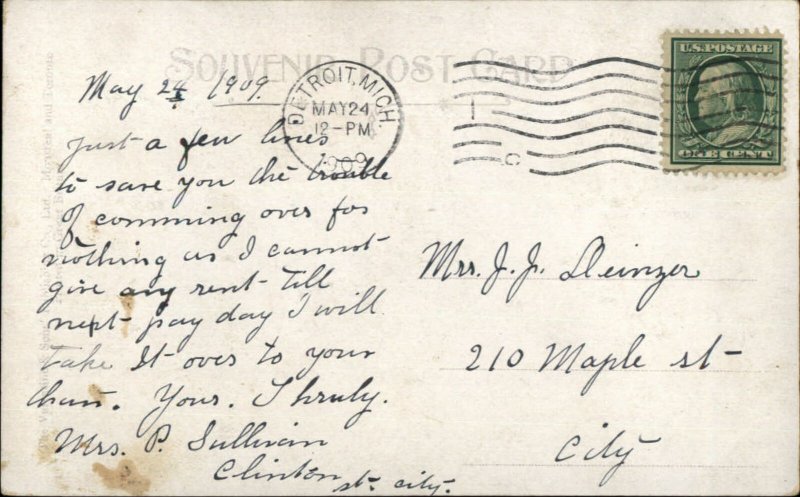 SOUVENIR POST CARD
May 24 1909.
DETROIT, MICH.
MAY 24
12-PM
1909
1
C
U.S. POSTAGE
ONE CENT
just a few lines
to save you the trouble
of comming over for
nothing as I cannot
give any rent till
next pay day I will
take It over to your
Your. Thruly.
Mrs. P. Sullivan
Clinton st. city.
Mrs. J. J. Deinzer
210 Maple st
City